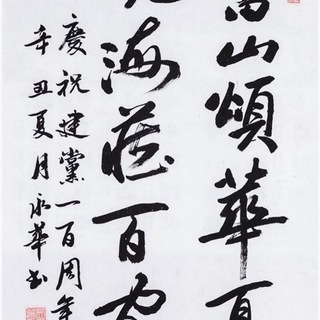 山頌華
海百
慶祝建黨一百周年
辛丑夏月永華書